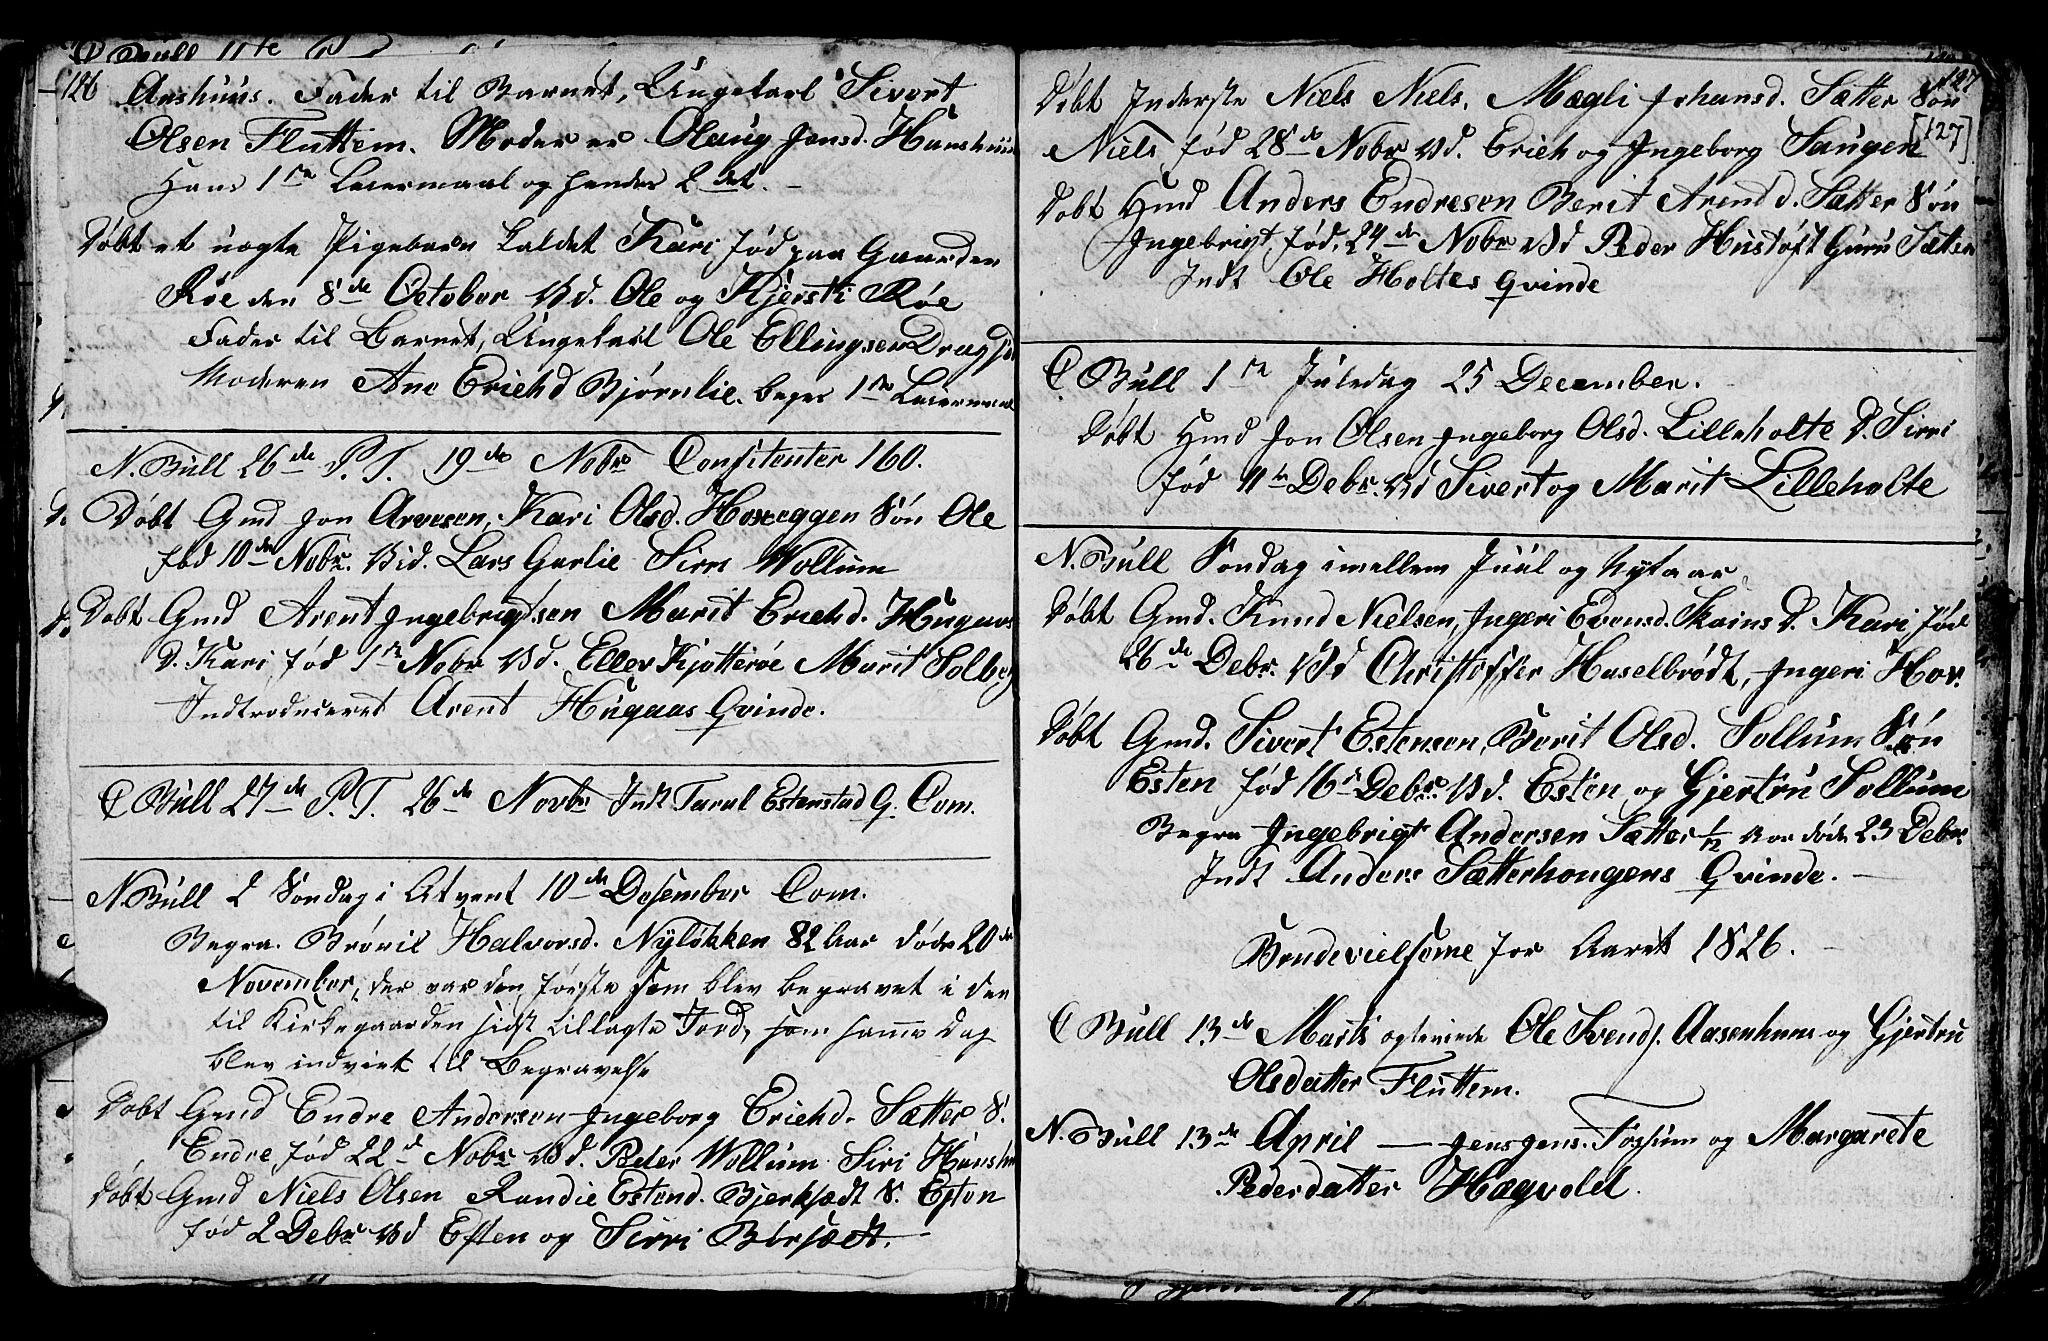 126
Aashuus. Fader til Barnet, Ungekarl Sivert
Olsen Fluttem. Moder er Olaug Jonsd. Hanshuus
Hans 1ste Leiermaal og hendes 2det.
Døbt et uægte Pigebarn kaldet Kari fød paa Gaarden
Røe den 8de October Vd. Ole og Kjersti Røe
Fader til Barnet, Ungekarl Ole Ellingsen
Moderen Ane Erichd Bjørnlie. beges 1ste Leiermaal
N. Bull 26de P. T. 19de Nobr Confitenter 160.
Døbt Gmd Jon Arvesen, Kari Olsd. Hoseggen Søn Ole
fød 10de Nobr. Vid. Lars Garlie Sirri Wollum
Døbt Gmd Arent Ingebrigtsen Marit Erichd. Hugaas
D. Kari fød 1te Nobr Vd. Ellev Kjøtterøe Marit Solberg
Indtroduceret Arent Hugaas Qvinde.
C Bull 27de P. T. 26de Novbr Indt. Estenstad Q. Com.
N. Bull 2 Søndag i Atvent 10de Desember Com.
Begra. Brønil Halvorsd. Nyløkken 82 Aar døde 20de
November, der var den første som blev begravet i den
til Kirkegaarden sidst tillagte Jord, som samme Dag
blev indviet til Begravelse
Døbt Gmd Endre Andersen Ingeborg Erichd. Sætter S.
Endre, fød 22d Nobr Vd. Peder Wollum Siri
Døbt Gmd Niels Olsen Randie Estend. Bjerksædt S. Esten
fød 2 Debr Vd Esten og Sirri Børsædt.
127
[127]
Døbt Inderste Niels Niels. Mægli Johansd. Sætter Søn
Niels, fød 28de Nobr Vd. Erich og Ingeborg Haugen
Døbt Hmd Anders Endresen Berit Arend d. Sætter Søn
Ingebrigt, fød. 24de Nobr Vd Peder Hustøft Guru Sætter
Indt Ole Holtes Qvinde
C Bull 1te Juledag 25 December.
Døbt Hmd Jon Olsen Ingeborg Olsd. Lilleholte D. Sirri
fød 11te Debr. Vd Sivert og Marit Lilleholte
N. Bull Søndag imellem Juul og Nytaar
Døbt Gmd. Knud Nielsen, Ingeri Evensd. D. Kari fød
26de Debr. Vd Christoffer Haselbrødt, Ingeri Hov.
Døbt Gmd. Sivert Estensen, Berit Olsd. Sollum Søn
Esten fød 16d Debr. Vd. Esten og Gjertru Sollum
Begra Ingebrigt Andersen Sætter 1/12 Aar døde 23 Debr
Indt Anders Sætterhougens Qvinde.
Brudevielserne for Aaret 1826.
C Bull 13de Marts egteviede Ole Svends. Aasenhuus og Gjertru
Olsdatter Fluttem.
N. Bull 13de April — Jens Jens. Foshum og Margarete
Pedersdatter Hægvold.